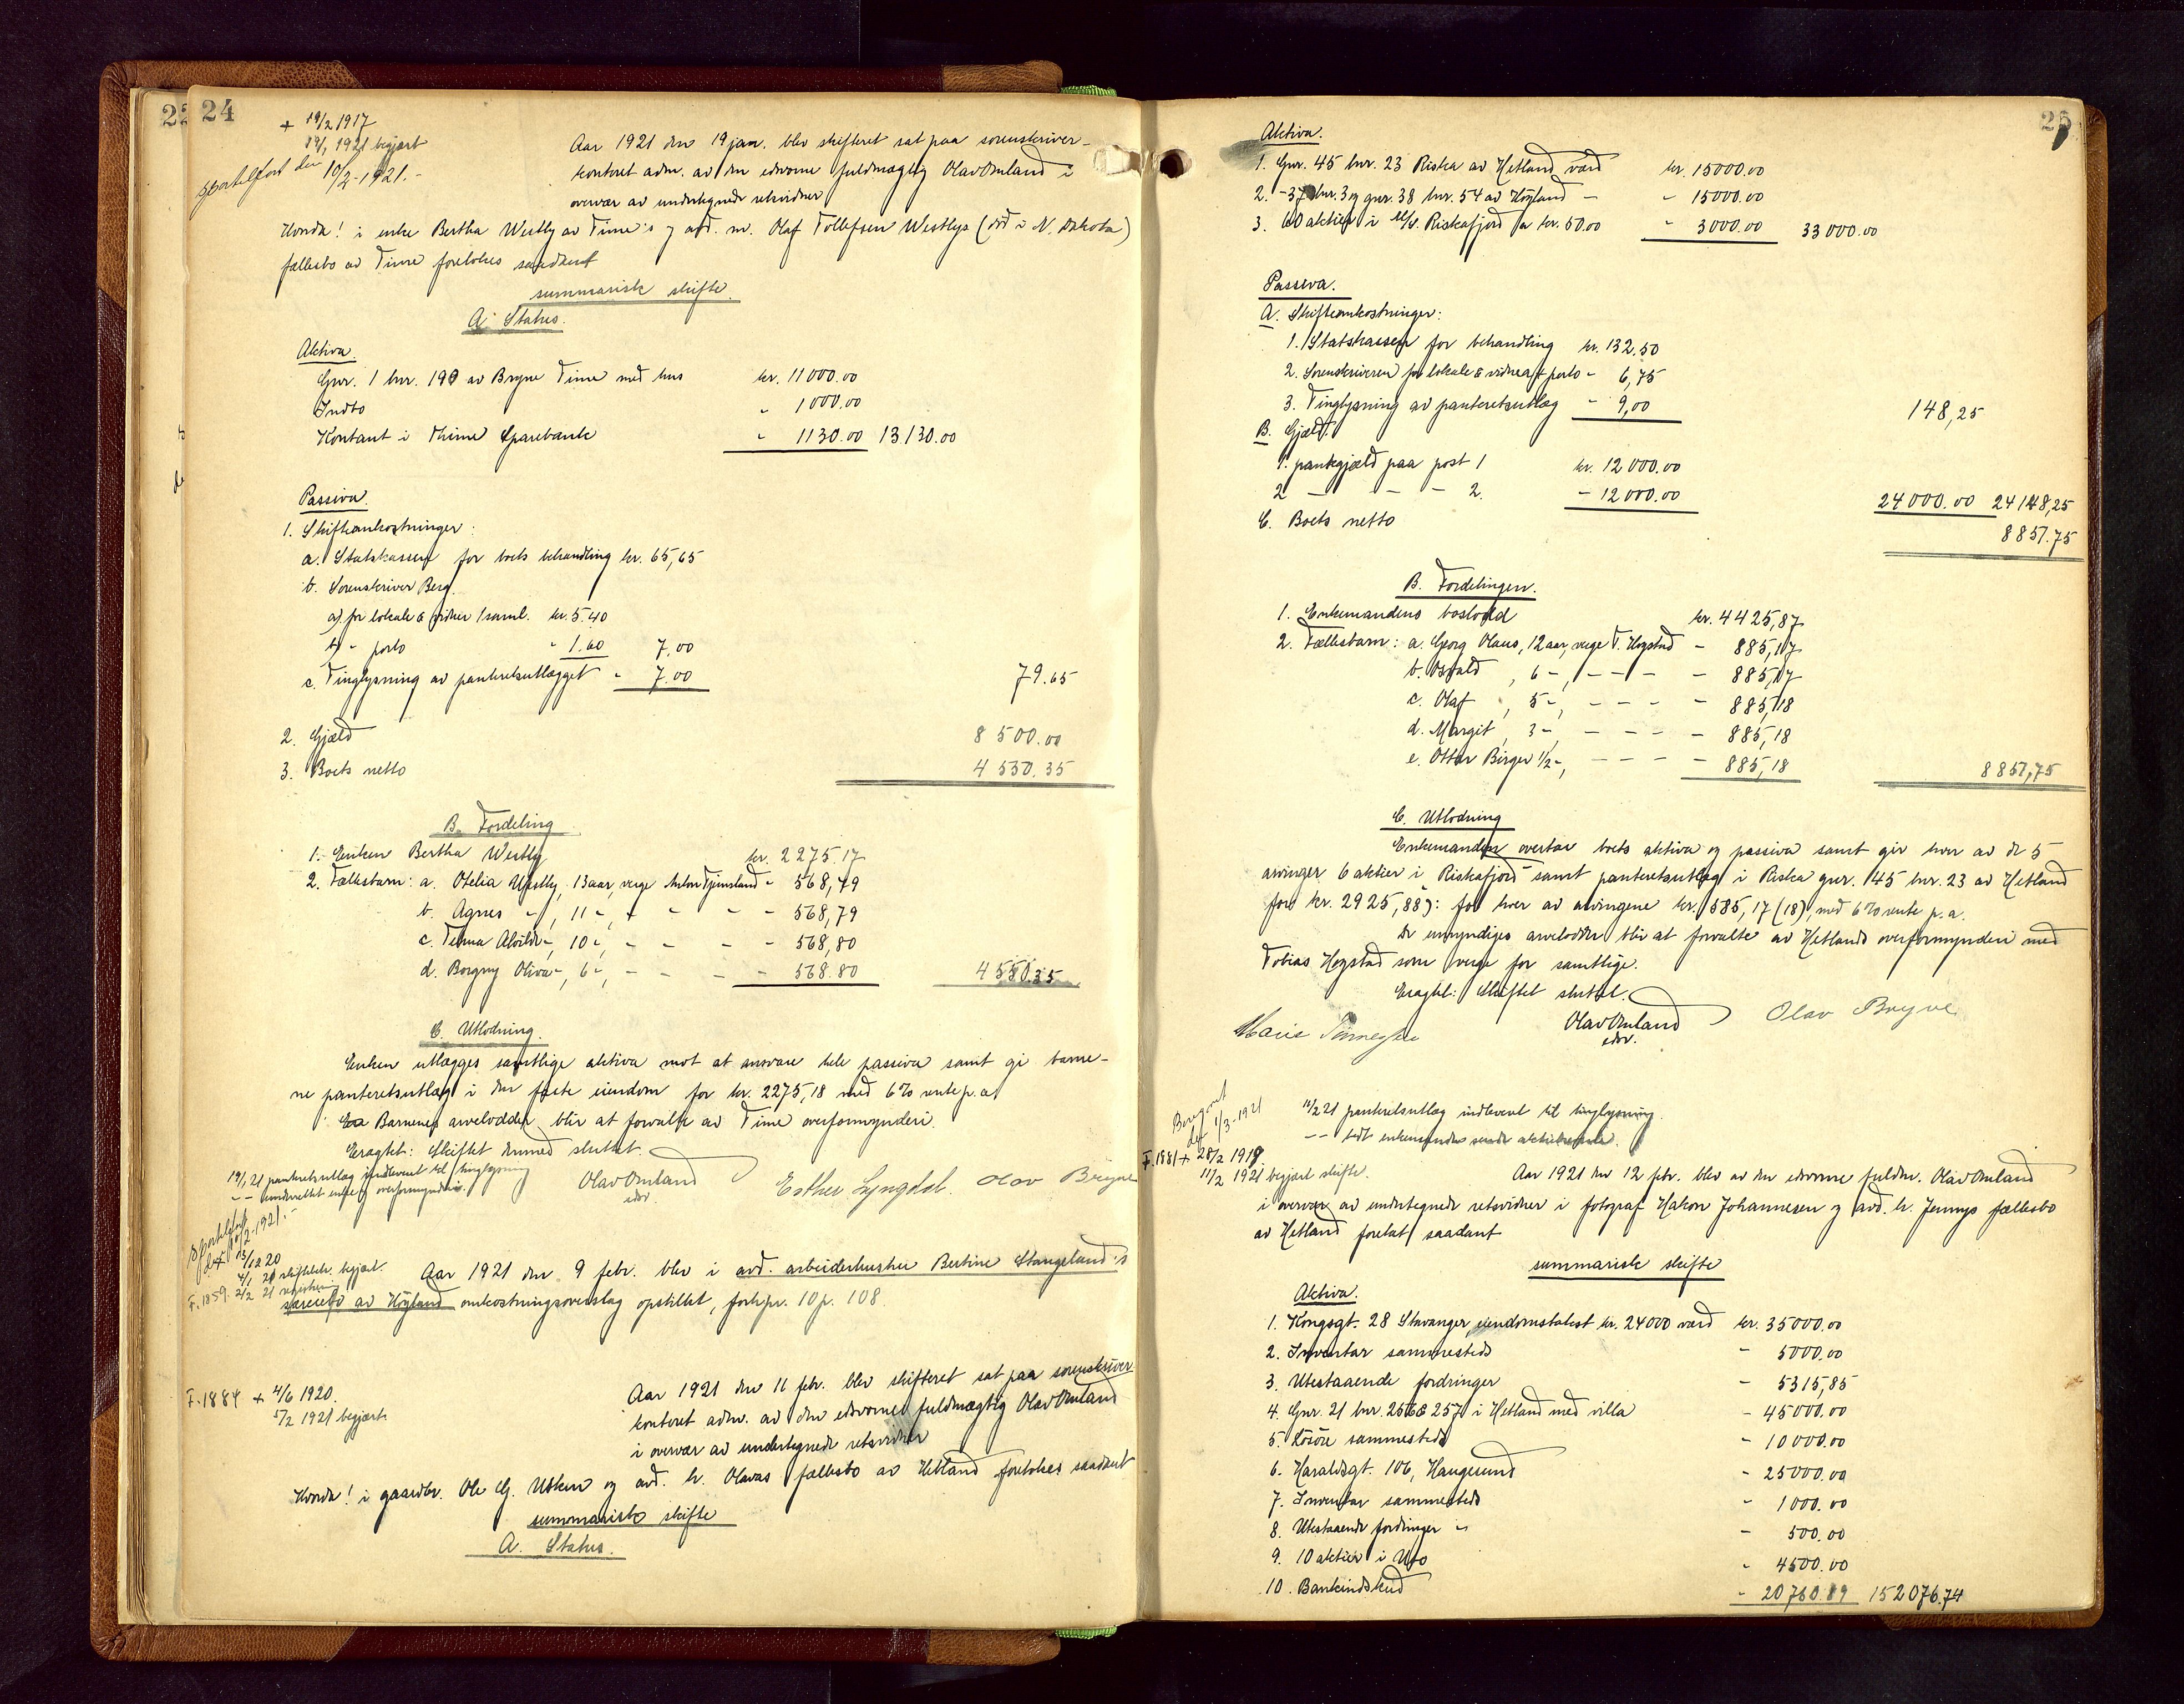 22
24
+ 19/2 1917
14/1 1921 begjært
Sportelført den 10/2 - 1921. -
Aar 1921 den 19 jan. blev skifteret sat paa sorenskriver-
kontoret adm. av den edsvorne fuldmægtig Olav Omland i
overvær av undertegnede retsvidner
Hvorda! i enke Bertha Westly av Time's og avd. m. Olaf Tollefsen Westlys (død i N. Dakota)
fællesbo av Time foretokes saadant
summarisk skifte.
A. Status.
Aktiva.
Gnr. 1 bnr. 190 av Bryne Time med hus kr. 11000.00
Indbo " 1000.00
Kontant i Thime Sparebank " 1130.00 13.130.00
Passiva.
1. Skifteomkostninger:
a. Statskassen for boets behandling kr. 65,65
b. Sorenskriver Berg.
a) for lokale & vidner 1 saml. kr. 5.40
b) " porto " 1.60 7,00
c. Tinglysning av panteretsutlægget " 7.00
79.65
2. Gjæld 8500.00
3. Boets netto 4550.35
B. Fordeling
1. Enken Bertha Westly kr. 2275.17
2. Fællesbarn: a. Otelia Westly, 13 aar, verge Anton Tjemsland " 568,79
b. Agnes -"-, 11 -, - - - - 568,79
c. Telma Alvilde -, 10 -, - - - - 568,80
d. Borgny Oliva -, 6 -, - - - - 568.80 4550.35
C. Utlodning.
Enken utlægges samtlige aktiva mot at ansvare hele passiva samt gi barne-
ne panteretsutlæg i den faste eiendom for kr. 2275,18 med 6% rente p. a.
Barnenes arvelodder blir at forvalte av Time overformynderi.
Eragtet: Skiftet dermed sluttet.
19/1 21 panteretsutlæg indlevert til tinglysning
-"- underrettet enken og overformynderi.
Olav Omland
edsv.
Esther Lyngdal. Olav Bryne
Sportelført
den 10/2 - 1921. -
+ 13/12 20
4/1 21 skiftebeh. begjært.
F. 1859. 2/2 21 registrering
Aar 1921 den 9 febr. blev i avd. arbeiderhustru Bertine Stangeland's
særeiebo av Høyland omkostningsoverslag opstillet, forh.pr. 10 p. 108.
F. 1884 + 4/6 1920.
5/2 1921 begjært.
Aar 1921 den 11 febr. blev skifteret sat paa sorenskriver
kontoret adm. av den edsvorne fuldmægtig Olav Omland
i overvær av undertegnede retsvidner
Hvorda! i gaardbr. Ole G. Usken og avd. h. Olavas fællesbo av Hetland foretokes saadant
summarisk skifte
A. Status.
25
Aktiva.
1. Gnr. 45 bnr. 23 Riska av Hetland værd kr. 15000.00
2. - 37 bnr. 3 og gnr. 38 bnr. 54 av Høyland - - 15000.00
3. 60 aktier i A/S. Riskafjord à kr. 50.00 - 3000.00 33000.00
Passiva.
A. Skifteomkostninger:
1. Statskassen for behandling kr. 132.50
2. Sorenskriveren for lokale & vidner & porto - 6,75
3. Tinglysning av panteretsutlæg - 9,00 148,25
B. Gjæld.
1. pantegjæld paa post 1 kr. 12000.00
2 - - - 2. - 12000.00 24000.00 24148,25
C. Boets netto 8851.75
B. Fordelingen.
1. Enkemandens boslodd kr. 4425,87
2. Fællesbarn: a. Georg Olaus, 12 aar, verge T. Hogstad - 885,17
b. Osvald, 6 -, - - - - 885,17
c. Olaf, 5 -, - - - - 885,18
d. Margit, 3 -, - - - - 885,18
e. Ottar Birger 1/2 -, - - - - 885,18 8851,75
C. Utlodning
Enkemanden overtar boets aktiva og passiva samt gir hver av de 5
arvinger 6 aktier i Riskafjord samt panteretsutlæg i Riska gnr. 45 bnr. 23 av Hetland
for kr. 2925,88 ): for hver av arvingene kr. 585,17 (18), med 6% rente p. a.
De umyndiges arvelodder blir at forvalte av Hetlands overformynderi med
Tobias Hogstad som verge for samtlige.
Eragtet: Skiftet sluttet.
Marie Tønnessen
Olav Omland
edsv.
Olav Bryne
Beregnet
den 1/3 - 1921
11/2 21 panteretsutlæg indlevert til tinglysning.
F. 1881 + 28/2 1919
11/2 1921 begjært skifte.
Aar 1921 den 12 febr. blev av den edsvorne fuldm. Olav Omland
i overvær av undertegnede retsvidner i fotograf Hakon Johannesen og avd. h. Jennys fællesbo
av Hetland foretat saadant
summarisk skifte
Aktiva.
1. Kongsgt. 28 Stavanger, eiendomstakst kr. 24000 værd kr. 35000.00
2. Inventar sammesteds - 5000.00
3. Utestaaende fordringer - 5315,85
4. Gnr. 21 bnr. 256 & 257 i Hetland med villa - 45000.00
5. Løsøre sammesteds - 10000.00
6. Haraldsgt. 106, Haugesund - 25000.00
7. Inventar sammesteds - 1000.00
8. Utestaaende fordringer -"- - 500.00
9. 10 aktier i Uto - 4500.00
10. Bankindskud - 20760.89 152076.74